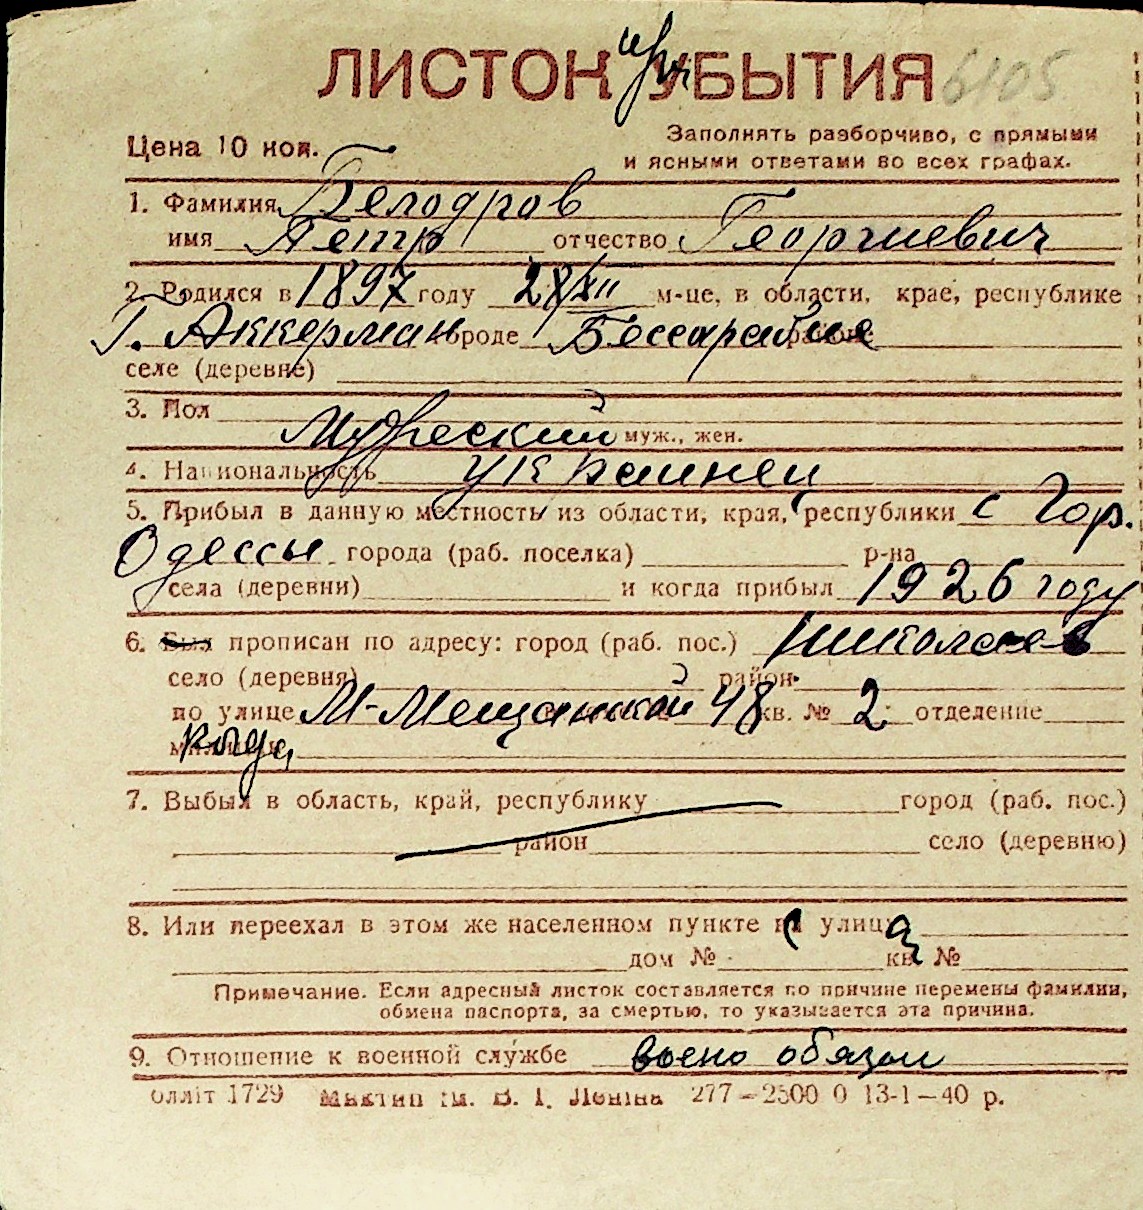 ЛИСТОК УБЫТИЯ при 6105
Цена 10 коп.
Заполнять разборчиво, с прямыми
и ясными ответами во всех графах.
1. Фамилия Белодров
имя Петр отчество Георгиевич
2. Родился в 1897 году 28/XII м-це, в области, крае, республике
Г. Аккерман городе Бессарабие районе
селе (деревне)
3. Пол
Мужеский муж., жен.
4. Национальность украинец
5. Прибыл в данную местность из области, края, республики с Гор.
Одессы города (раб. поселка) р-на
села (деревни) и когда прибыл 1926 году
6. Был прописан по адресу: город (раб. пос.) Николаев
село (деревня) район
по улице М-Мещанской 48 кв. № 2 отделение
милиции
7. Выбыл в область, край, республику город (раб. пос.)
район село (деревню)
8. Или переехал в этом же населенном пункте с улица
дом № кв. №
Примечание. Если адресный листок составляется по причине перемены фамилии,
обмена паспорта, за смертью, то указывается эта причина.
9. Отношение к военной службе воено обязан
олліт 1729 ім. В. І. Леніна 277—2500 0 13-1—40 р.